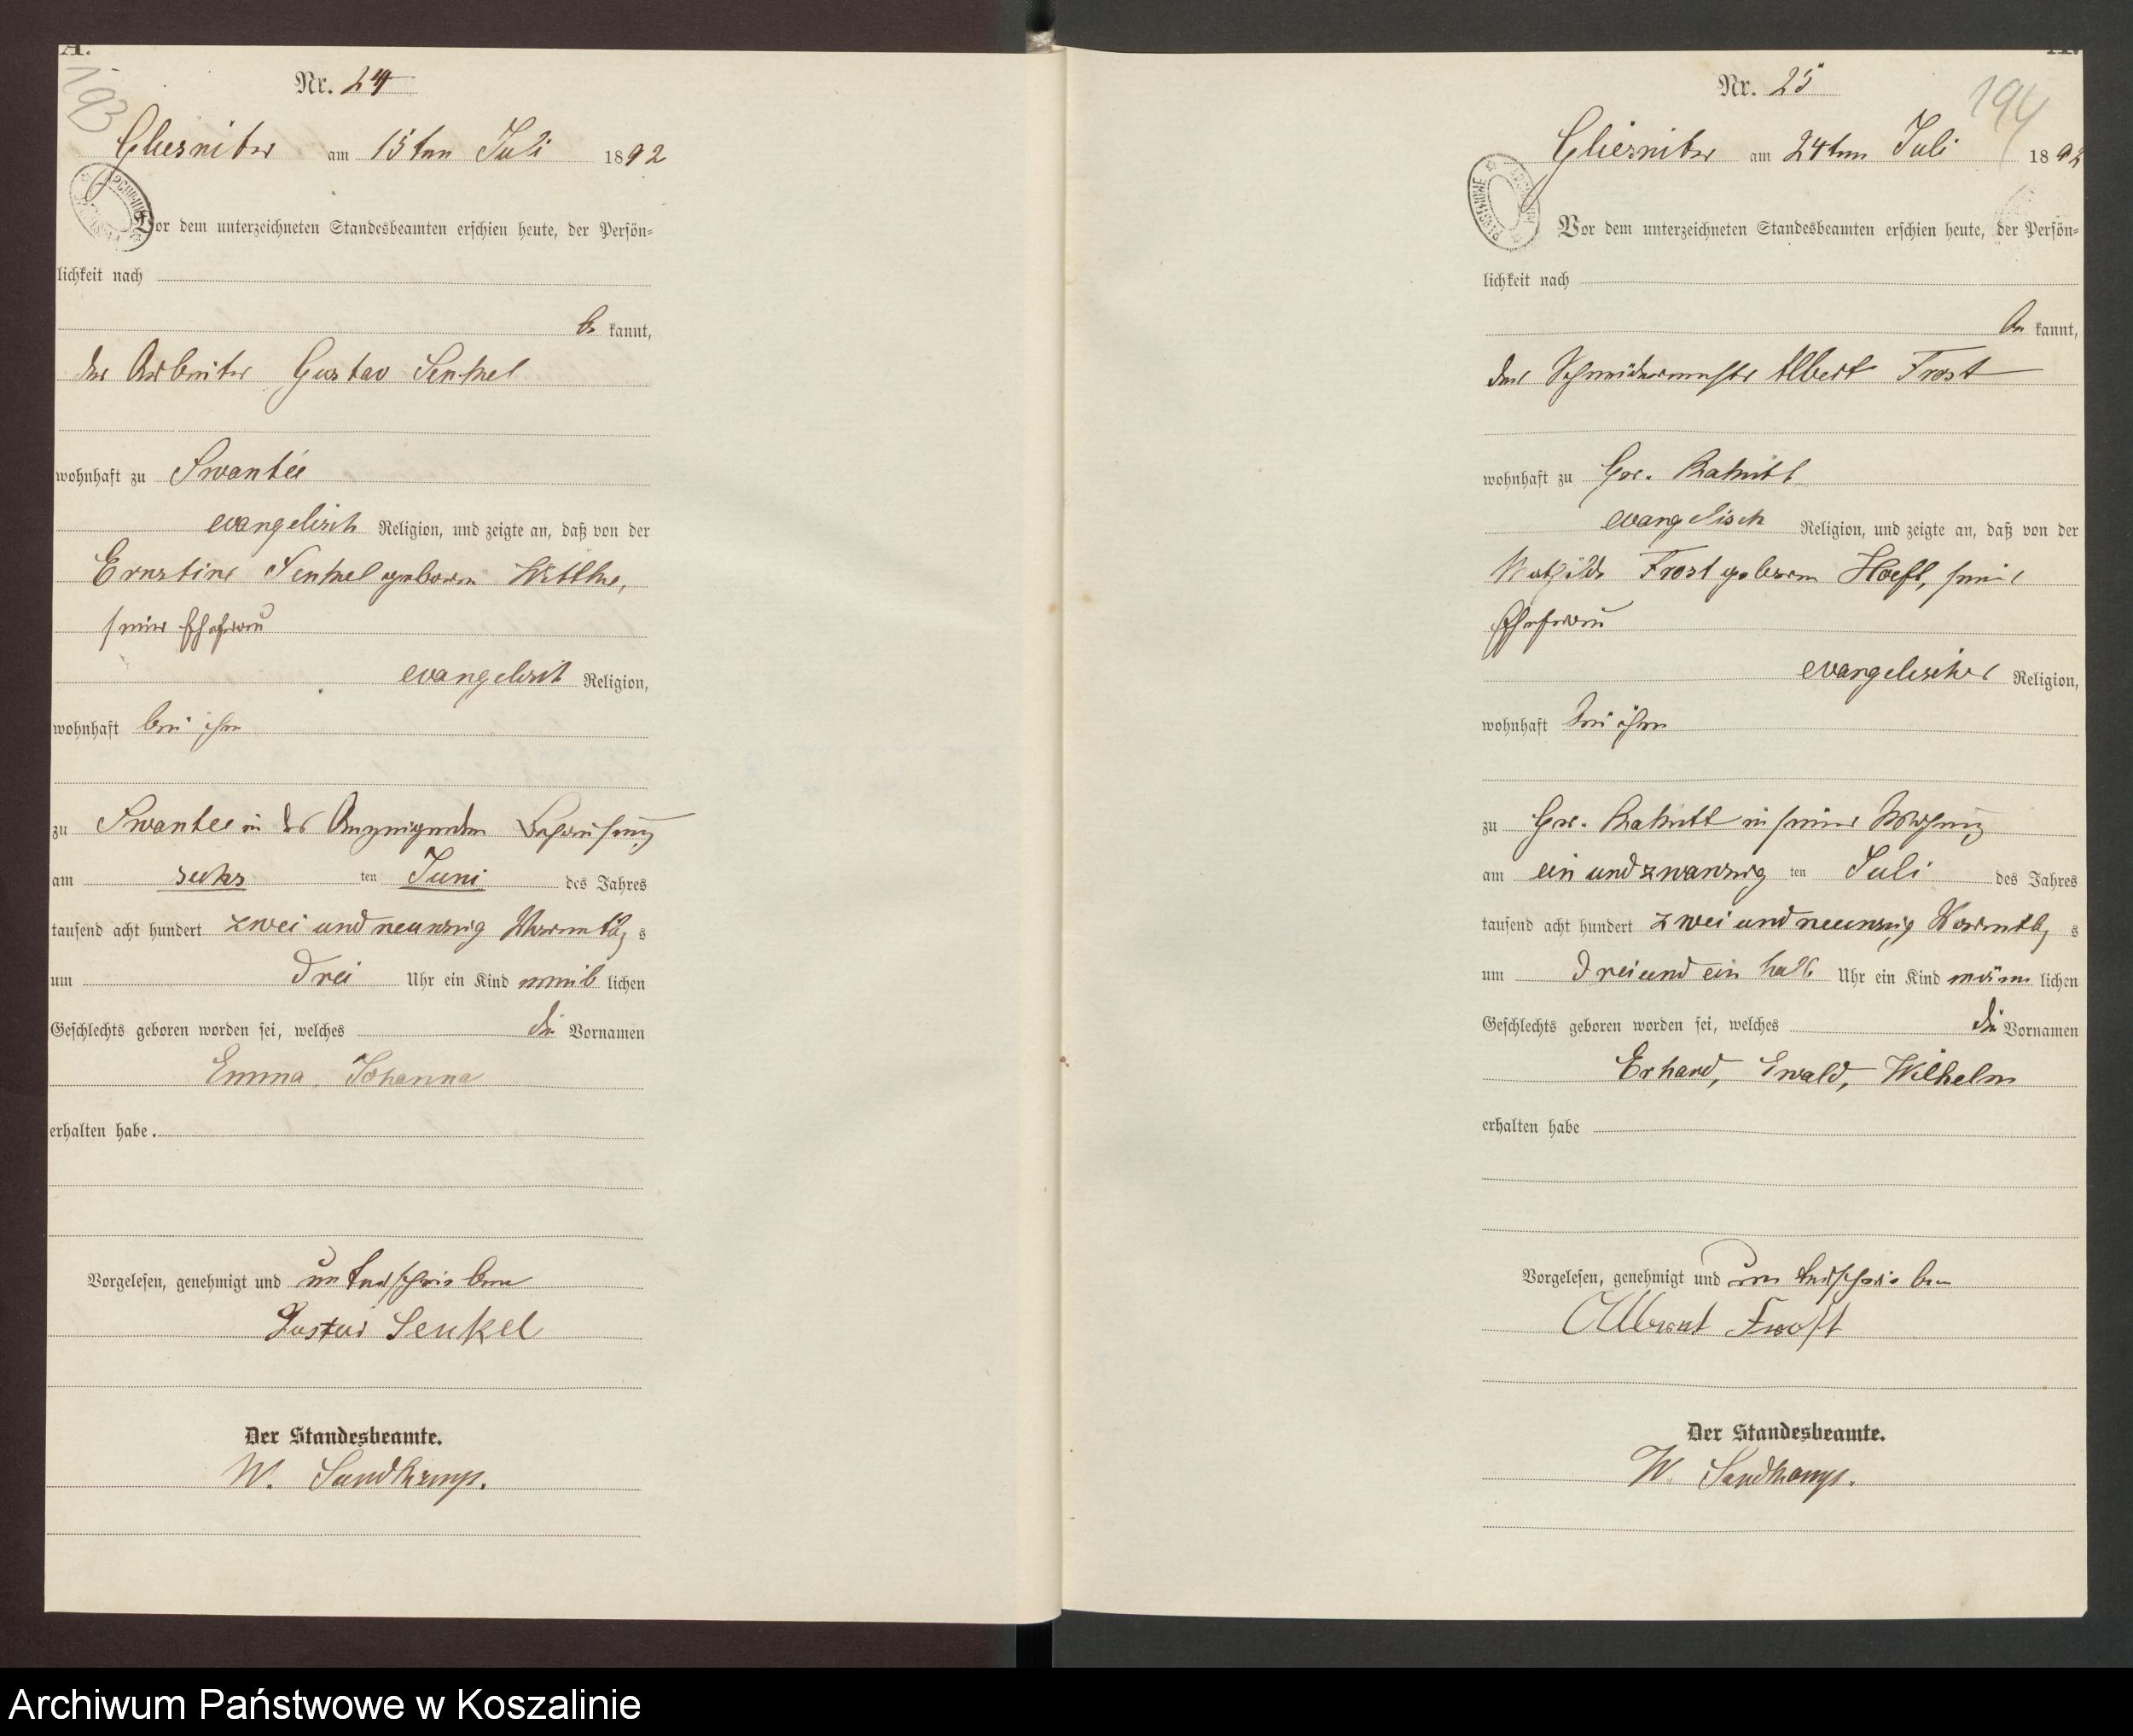 A.
193
Nr. 24
Gliesnitz am 15ten Juli 1892
Vor dem unterzeichneten Standesbeamten erschien heute, der Persön-
lichkeit nach
be kannt,
der Arbeiter Gustav Senkel
wohnhaft zu Swantee
evangelisch Religion, und zeigte an, daß von der
Ernstine Senkel geboren
seiner Ehefrau
evangelisch Religion,
wohnhaft bei ihm
zu Swantee in des Anzeigenden Behausung
am sechs ten Juni des Jahres
tausend acht hundert zwei und neunzig Vormittag s
um Drei Uhr ein Kind weib lichen
Geschlechts geboren worden sei, welches die Vornamen
Emma Johanna
erhalten habe.
Vorgelesen, genehmigt und unterschrieben
Gustav Senkel
Der Standesbeamte.
W. Sandkamp.
A.
194
Nr. 25
Gliesnitz am 24ten Juli 1892
ARCHIWUM PAŃSTWOWE
Vor dem unterzeichneten Standesbeamten erschien heute, der Persön-
lichkeit nach
be kannt,
der Schneidermeister Albert Frost
wohnhaft zu Gr.
evangelisch Religion, und zeigte an, daß von der
Mathilde Frost geboren Hoeft, seine
Ehefrau
evangelischer Religion,
wohnhaft bei ihm
zu Gr. in seiner Wohnung
am ein und zwanzig ten Juli des Jahres
tausend acht hundert zwei und neunzig Vormittag s
um Drei und ein halb Uhr ein Kind männ lichen
Geschlechts geboren worden sei, welches die Vornamen
Erhard, Ewald, Wilhelm
erhalten habe
Vorgelesen, genehmigt und unterschrieben
Albert Frost
Der Standesbeamte.
W. Sandkamp.
Archiwum Państwowe w Koszalinie